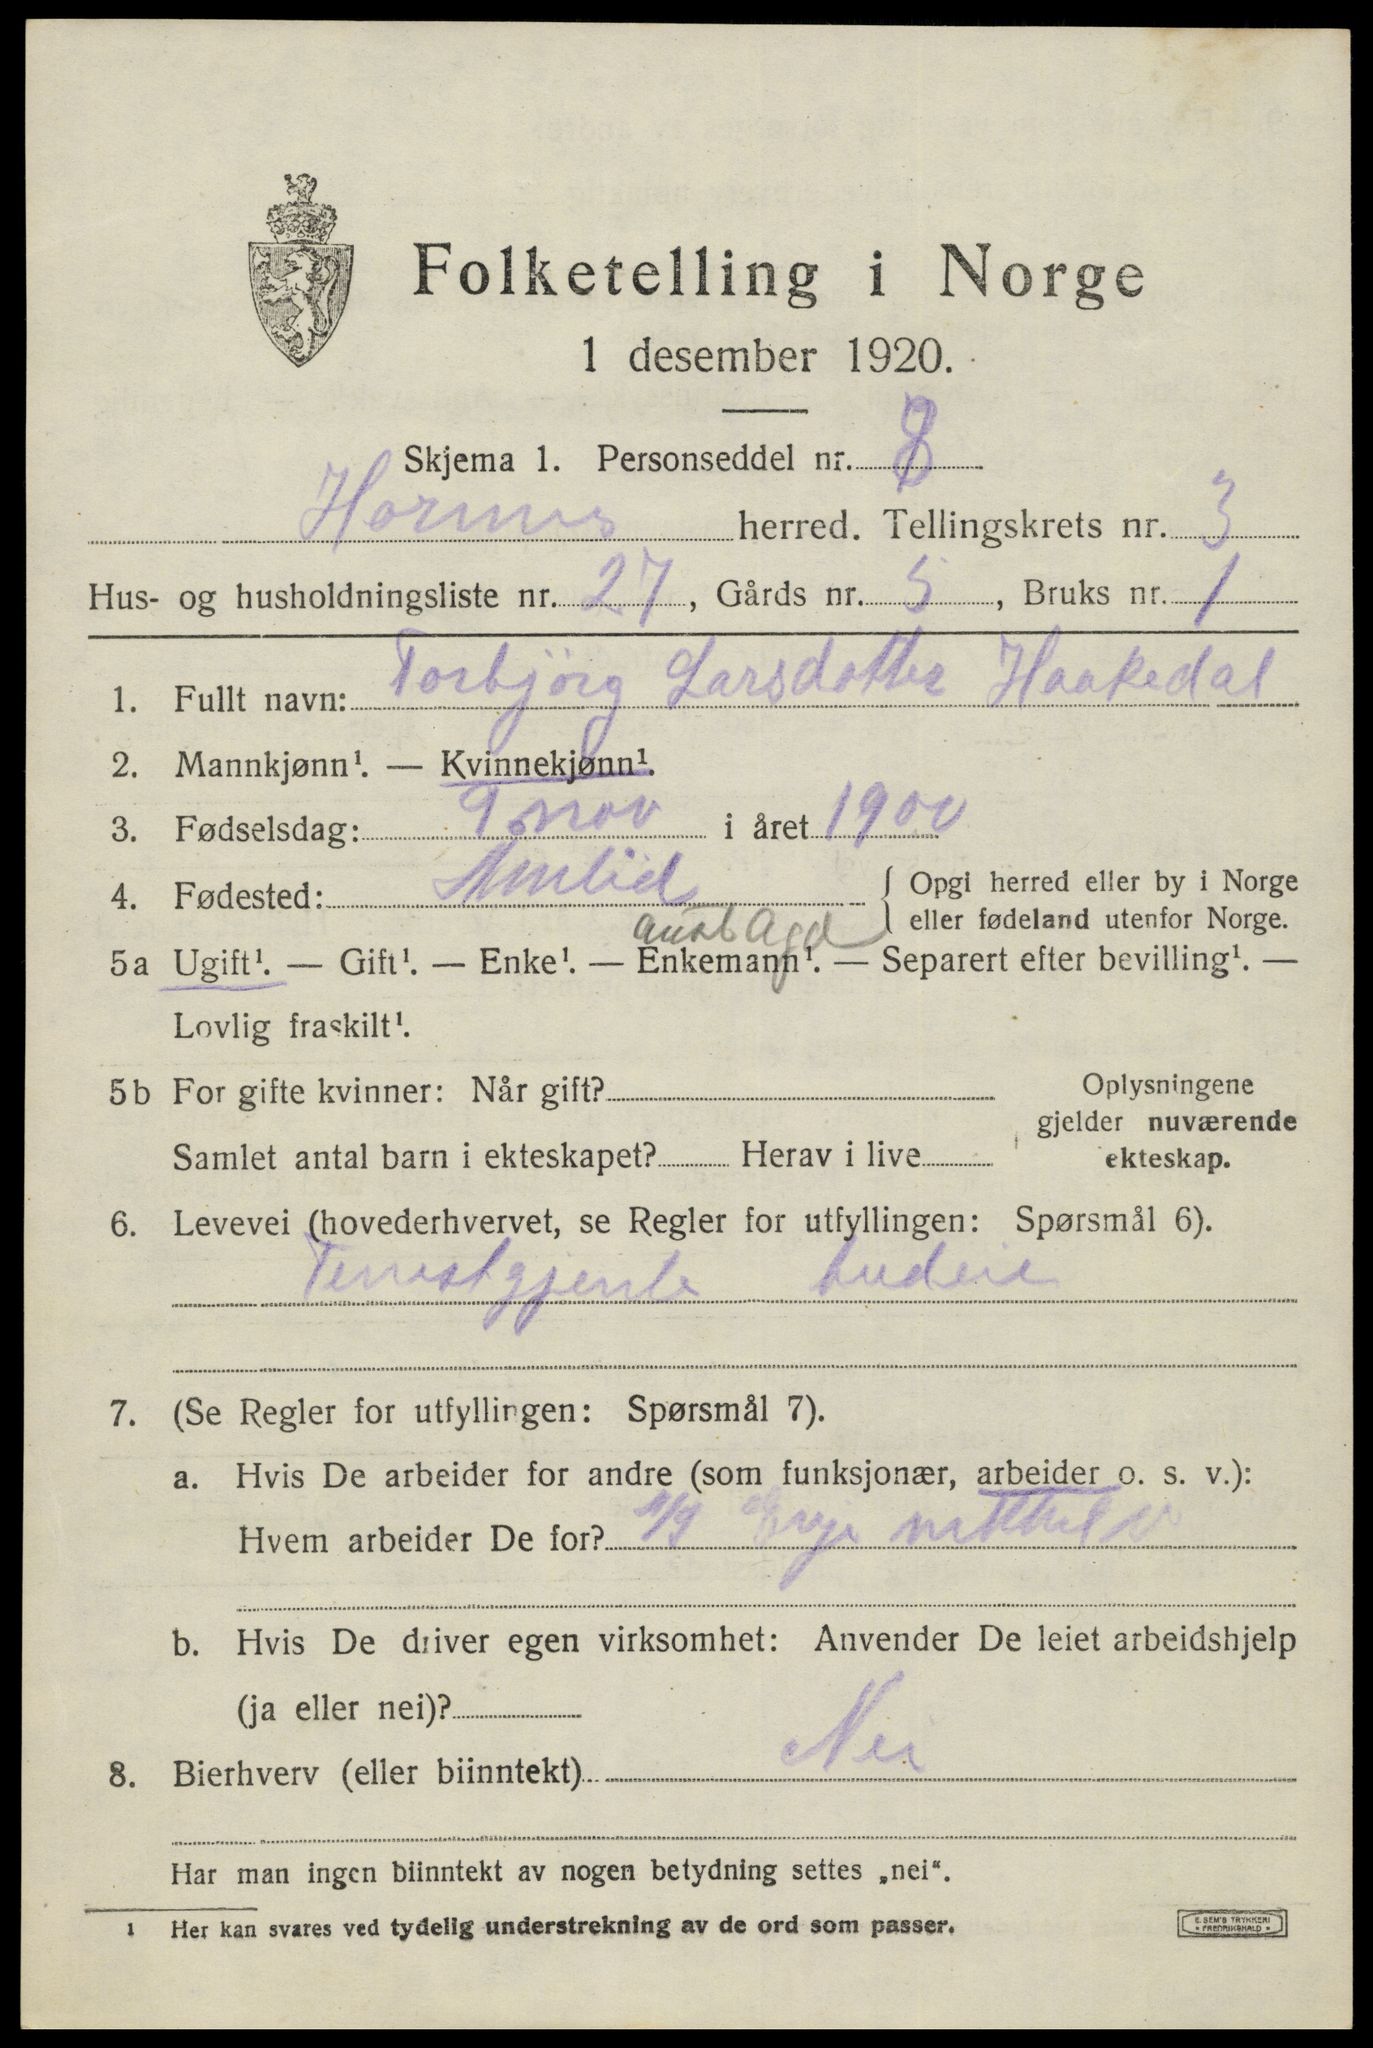 Folketelling i Norge
1 desember 1920.
Skjema 1. Personseddel nr. 8
Hornnes herred. Tellingskrets nr. 3
Hus- og husholdningsliste nr. 27, Gårds nr. 5, Bruks nr. 1
1. Fullt navn: Torbjörg Larsdotter Haakedal
2. Mannkjønn¹. — Kvinnekjønn¹.
3. Fødselsdag: nov i året 1900
4. Fødested: Aamlid { Opgi herred eller by i Norge
aust Agd eller fødeland utenfor Norge.
5a Ugift¹. — Gift¹. — Enke¹. — Enkemann¹. — Separert efter bevilling¹. —
Lovlig fraskilt¹.
5b For gifte kvinner: Når gift? Oplysningene
gjelder nuværende
Samlet antal barn i ekteskapet? Herav i live ekteskap.
6. Levevei (hovederhvervet, se Regler for utfyllingen: Spørsmål 6).
Tenestgjente budeie
7. (Se Regler for utfyllingen: Spørsmål 7).
a. Hvis De arbeider for andre (som funksjonær, arbeider o. s. v.):
Hvem arbeider De for? Evje
b. Hvis De driver egen virksomhet: Anvender De leiet arbeidshjelp
(ja eller nei)?
8. Bierhverv (eller biinntekt) Nei
Har man ingen biinntekt av nogen betydning settes „nei“.
1 Her kan svares ved tydelig understrekning av de ord som passer.
E. SEM'S TRYKKERI
* FREDRIKSHALD *